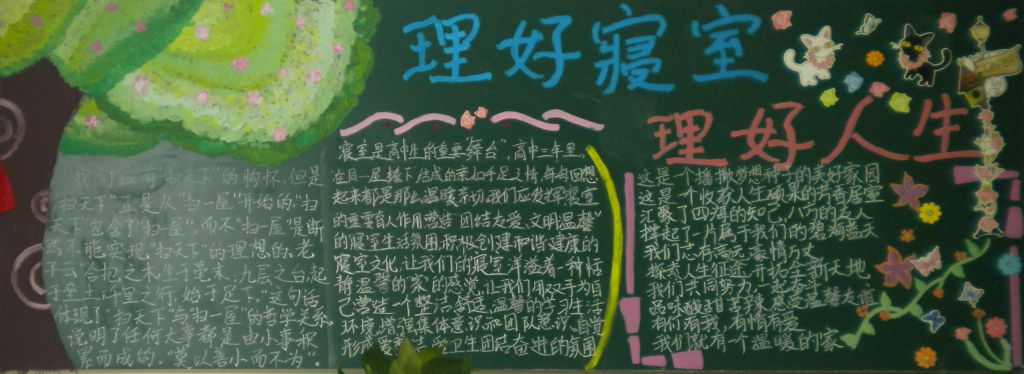 理好寝室
理好人生
我们应有"扫天下"的胸怀,但是
"扫天下"正是从"扫一屋"开始的"扫
天下"包含了"扫一屋",而不"扫一屋"是断
然不能实现"扫天下"的理想的。老
子云"合抱之木生于毫末,九层之台起
于垒土,千里之行,始于足下。"这句话
体现了"扫天下"与"扫一屋"的哲学关系
说明了任何大事都是由小事积
累而成的"莫以善小而不为"。
寝室是高中生的重要"舞台",高中三年里,
在同一屋檐下结成的亲如手足之情,每每回想
起来都是那么温暖亲切,我们应发挥寝室
的重要育人作用营造"团结友爱、文明温馨"
的寝室生活氛围,积极创建和谐健康的
寝室文化,让我们的寝室洋溢着一种恬
静温馨的"家"的感觉,让我们用双手为自
己营造一个整洁舒适,温馨的学习生活
环境,增强集体意识和团队意识,自觉
形成爱清洁 卫生团结奋进的氛围
这是个播撒梦想种子的美好家园
这是一个收获人生硕果的书香居室
汇聚了四海的知己,八方的友人
撑起了一片属于我们的碧海蓝天
我们志存高远,豪情万丈
探索人生征途,开拓全新天地
我们共同努力,一起奋斗
品味酸甜苦辣,感受温馨友谊
有们有我,有情有爱
我们就有个温暖的家